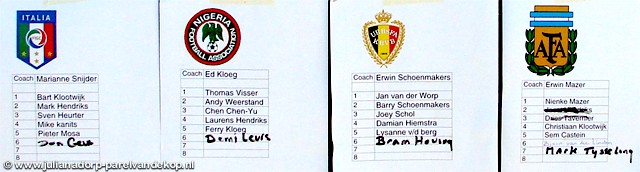 ITALIA
Coach Marianne Snijder
1 Bart Klootwijk
2 Mark Hendriks
3 Sven Heurter
4 Mike kanits
5 Pieter Mosa
6
7
8
NIGERIA
FOOTBALL ASSOCIATION
Coach Ed Kloeg
1 Thomas Visser
2 Andy Weerstand
3 Chen Chen-Yu
4 Laurens Hendriks
5 Ferry Kloeg
6 Demi Leuis
7
8
URBSFA
KBVB
Coach Erwin Schoenmakers
1 Jan van der Worp
2 Barry Schoenmakers
3 Joey Schol
4 Damian Hiemstra
5 Lysanne v/d berg
6 Bram
7
8
AFA
Coach Erwin Mazer
1 Nienke Mazer
2
3
4 Christiaan Klootwijk
5 Sem Castein
6
7 Mark
8
© www.julianadorp-parelvandekop.nl